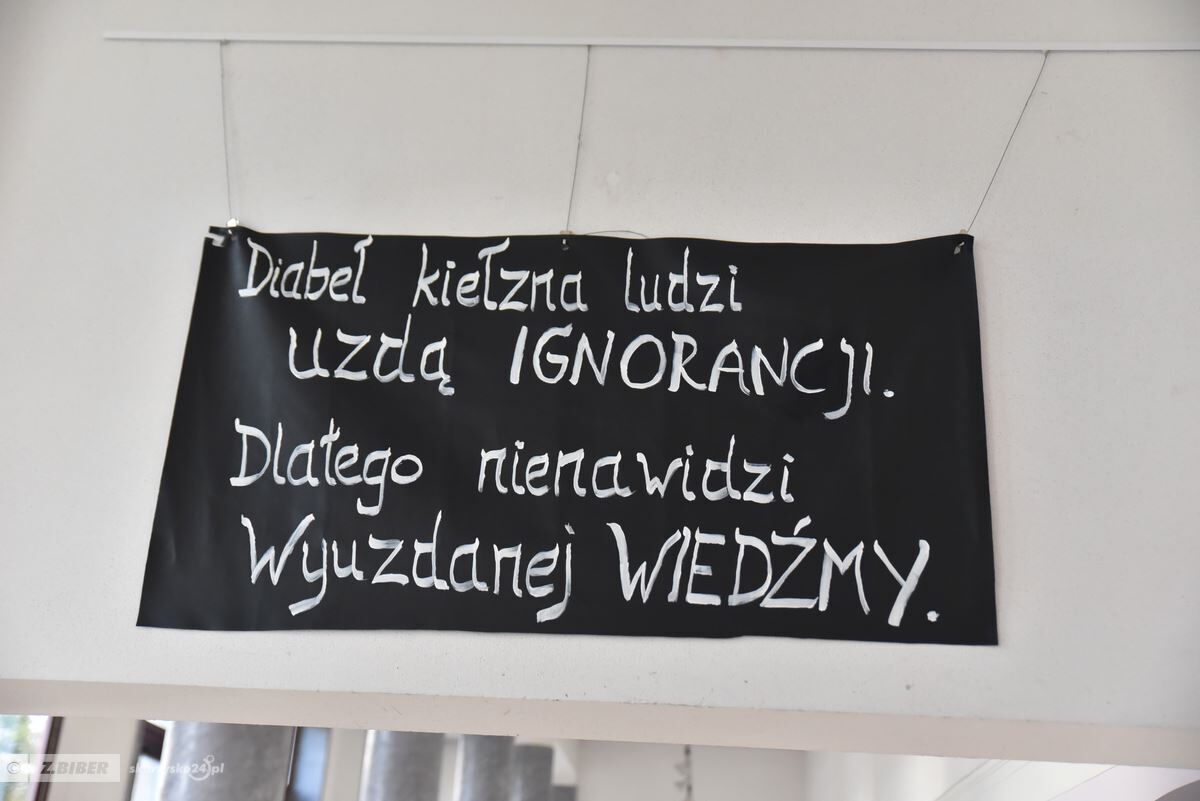 Diabeł kiełzna ludzi
uzdą IGNORANCJI.
Dlatego nienawidzi
Wyuzdanej WIEDŹMY.
© Z.BIBER